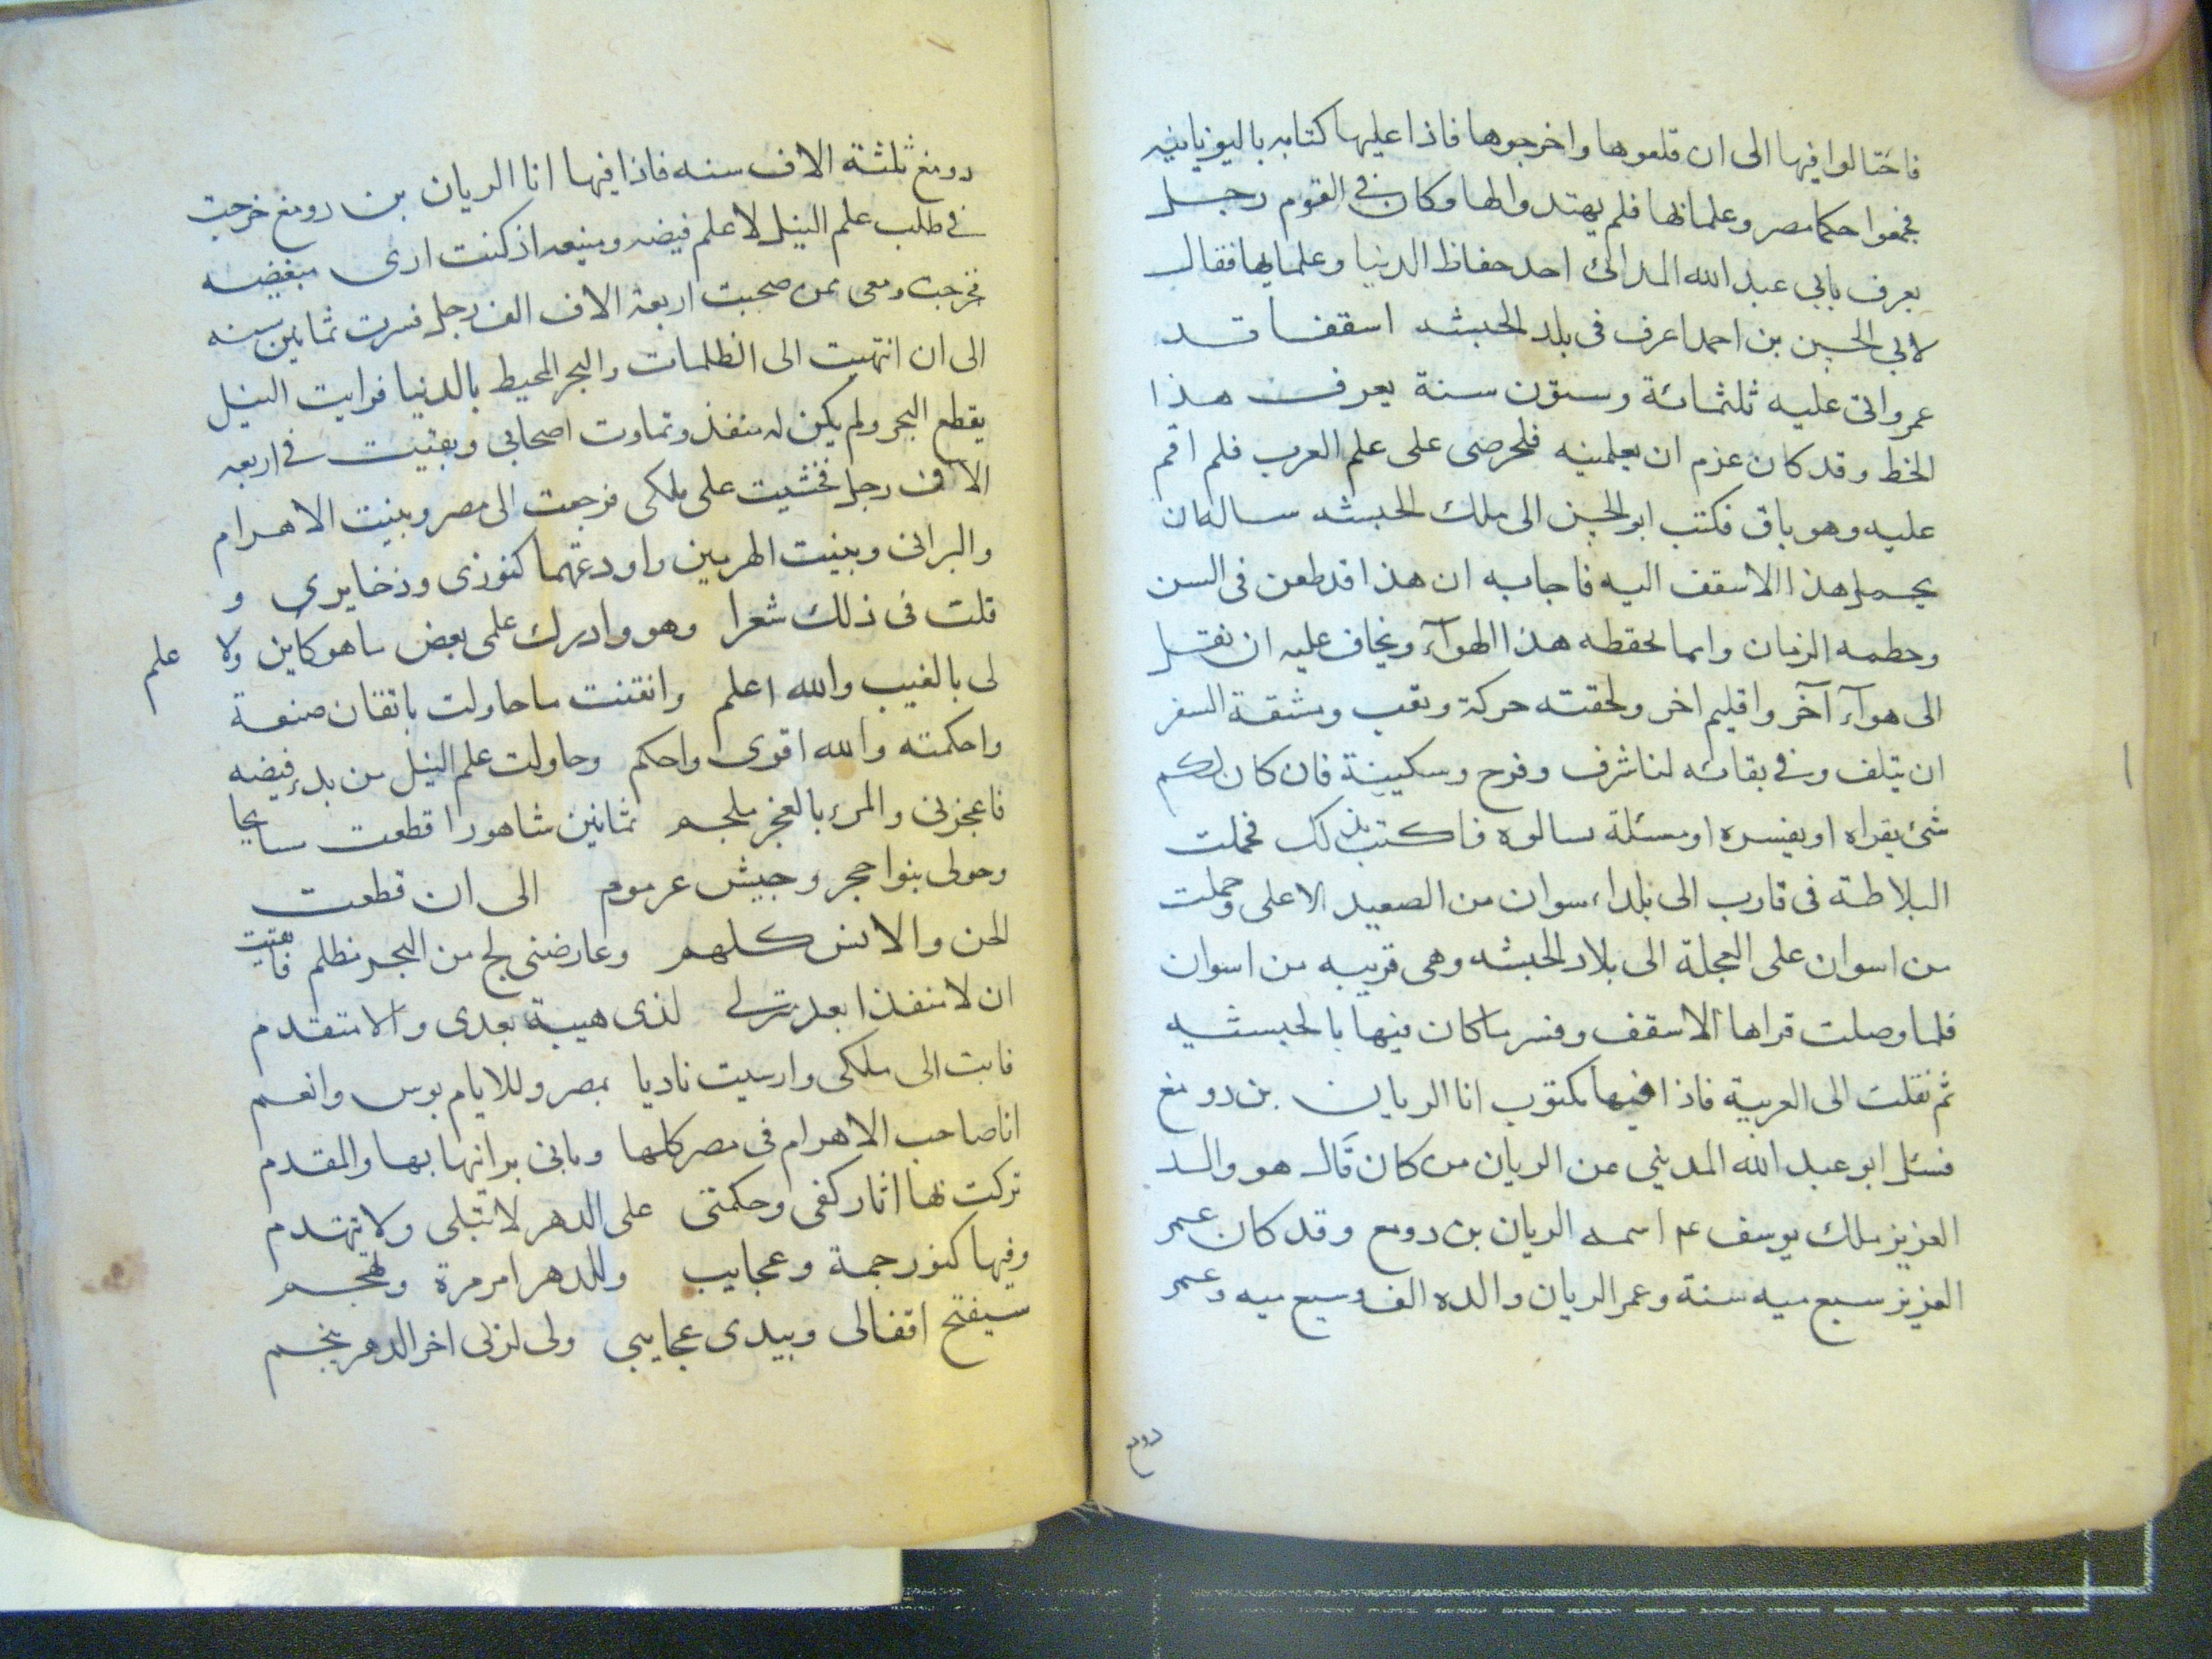 فاحتالوا فيها الى ان قلعوها واخرجوها فاذا عليها كتابه باليونانيه
فجمعوا حكما مصر وعلمائها فلم يهتدوا لها وكان في القوم رجل
يعرف بابي عبد الله المدائنى احد حفاظ الدنيا وعلمايها فقال
لابي الحسن بن احمد اعرف فى بلد الحبشه اسقفا قد
عمر واتى عليه ثلثمائة وستون سنة يعرف هذا
الخط وقد كان عزم ان يعلمنيه فلحرصى على علم العرب فلم اقم
عليه وهو باق فكتب ابو الحسن الى ملك الحبشه ساله ان
يحمل هذا الاسقف اليه فاجابه ان هذا قد طعن فى السن
وحطمه الزمان وانما يحفظه هذا الهوآء ويخاف عليه ان نقل
الى هوآء آخر واقليم اخر ولحقته حركة وتعب ومشقة السفر
ان يتلف وفي بقائه لنا شرف وفرح وسكينة فان كان لكم
شئ يقراه او يفسره او مسئلة تسالوه فاكتب بذلك فحملت
البلاطة فى قارب الى بلد اسوان من الصعيد الاعلى وحملت
من اسوان على العجلة الى بلاد الحبشه وهى قريبه من اسوان
فلما وصلت قراها الاسقف وفسر ما كان فيها بالحبشيه
ثم نقلت الى العربية فاذا فيها مكتوب انا الريان بن دومغ
فسئل ابو عبد الله المدينى عن الريان من كان قال هو والد
العزيز ملك يوسف عم اسمه الريان بن دومع وقد كان عمر
العزيز سبع ميه سنة وعمر الريان والده الف وسبع ميه وعمر
دومغ
دومغ ثلثة الاف سنه فاذا فيها انا الريان بن دومغ خرجت
في طلب علم النيل لاعلم فيضه ومنبعه اذ كنت ارى مبغضه
فخرجت ومعى ممن صحبت اربعة الاف الف رجل فسرت ثمانين سنه
الى ان انتهيت الى الظلمات والبحر المحيط بالدنيا فرايت النيل
يقطع البحر ولم يكن له منفذ وتماوت اصحابي وبقيت في اربعه
الاف رجل فخشيت على ملكى فرجعت الى مصر وبنيت الاهرام
والبرانى وبنيت الهرمين واودعتهما كنوزى وذخايرى و
قلت فى ذلك شعرا وهو وادرك علمى بعض ما هو كاين ولا علم
لى بالغيب والله اعلم واتقنت ما حاولت باتقان صنعة
واحكمته والله اقوى واحكم وحاولت علم النيل من بدء فيضه
فاعجزنى والمرء بالعجز ملجم ثمانين شاهورا قطعت سايحا
وحولى بنوا حجر وجيش عرمرم الى ان قطعت
الجن والانس كلهم وعارضنى لج من البحر مظلم فايقنت
ان لا منفذا بعد منزلى لذى هيبة بعدى ولا متقدم
فابت الى ملكى وارسيت ناديا بمصر وللايام بوس وانعم
انا صاحب الاهرام فى مصر كلها وبانى برانيها بها والمقدم
تركت بها اثار كفى وحكمتى على الدهر لا تبلى ولا تهدم
وفيها كنوز جمة وعجايب وللدهر امر مرة وتهجم
سيفتح اقفالى ويبدى عجايبى ولى لربى اخر الدهر ينجم